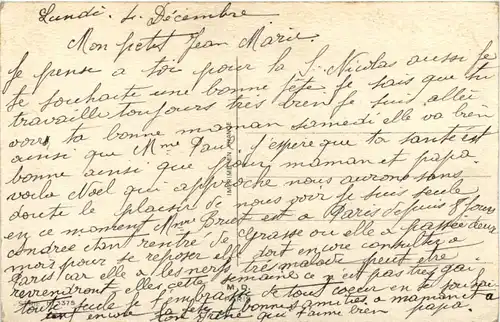 Lundi, 4. Décembre
Mon petit Jean Marie.
Je pense a toi pour la S. Nicolas aussi je
te souhaite une bonne fete. Je sais que tu
travaille toujours tres bien je suis allée
voir ta bonne maman samedi elle va bien
ainsi que Mme Paul j'espère que ta santé est
bonne ainsi que pour maman et papa
voila Noel qui approche nous aurons sans
doute le plaisir de vous voir je suis seule
en ce moment Mme Bruet est a Paris depuis 8 jours
étant rentrée de Grasse ou elle a passée deux
mois pour se reposer elle doit encore consulter a
Paris car elle a les nerfs tres malade peut etre
reviendront elles cette semaine ce n'est pas tres gai
toute seule je t'embrasse de tout coeur en te
encore ta fete bonnes amities a maman et a
papa.
qui t'aime bien
IMPRIMERIE
3375